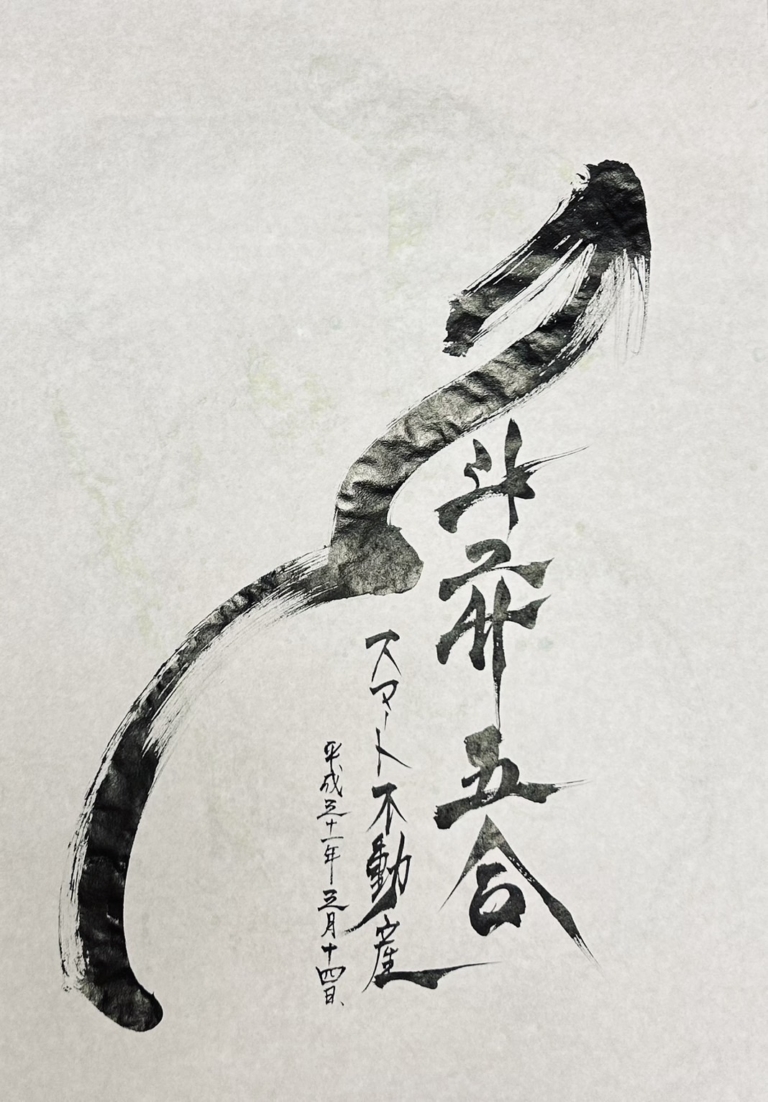 一斗二升五合
スマート不動産
平成三十一年三月十四日